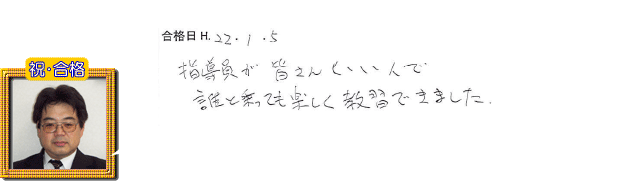 合格日 H. 22・1・5
祝・合格
指導員が 皆さん いい人で
誰と乗っても楽しく教習できました.